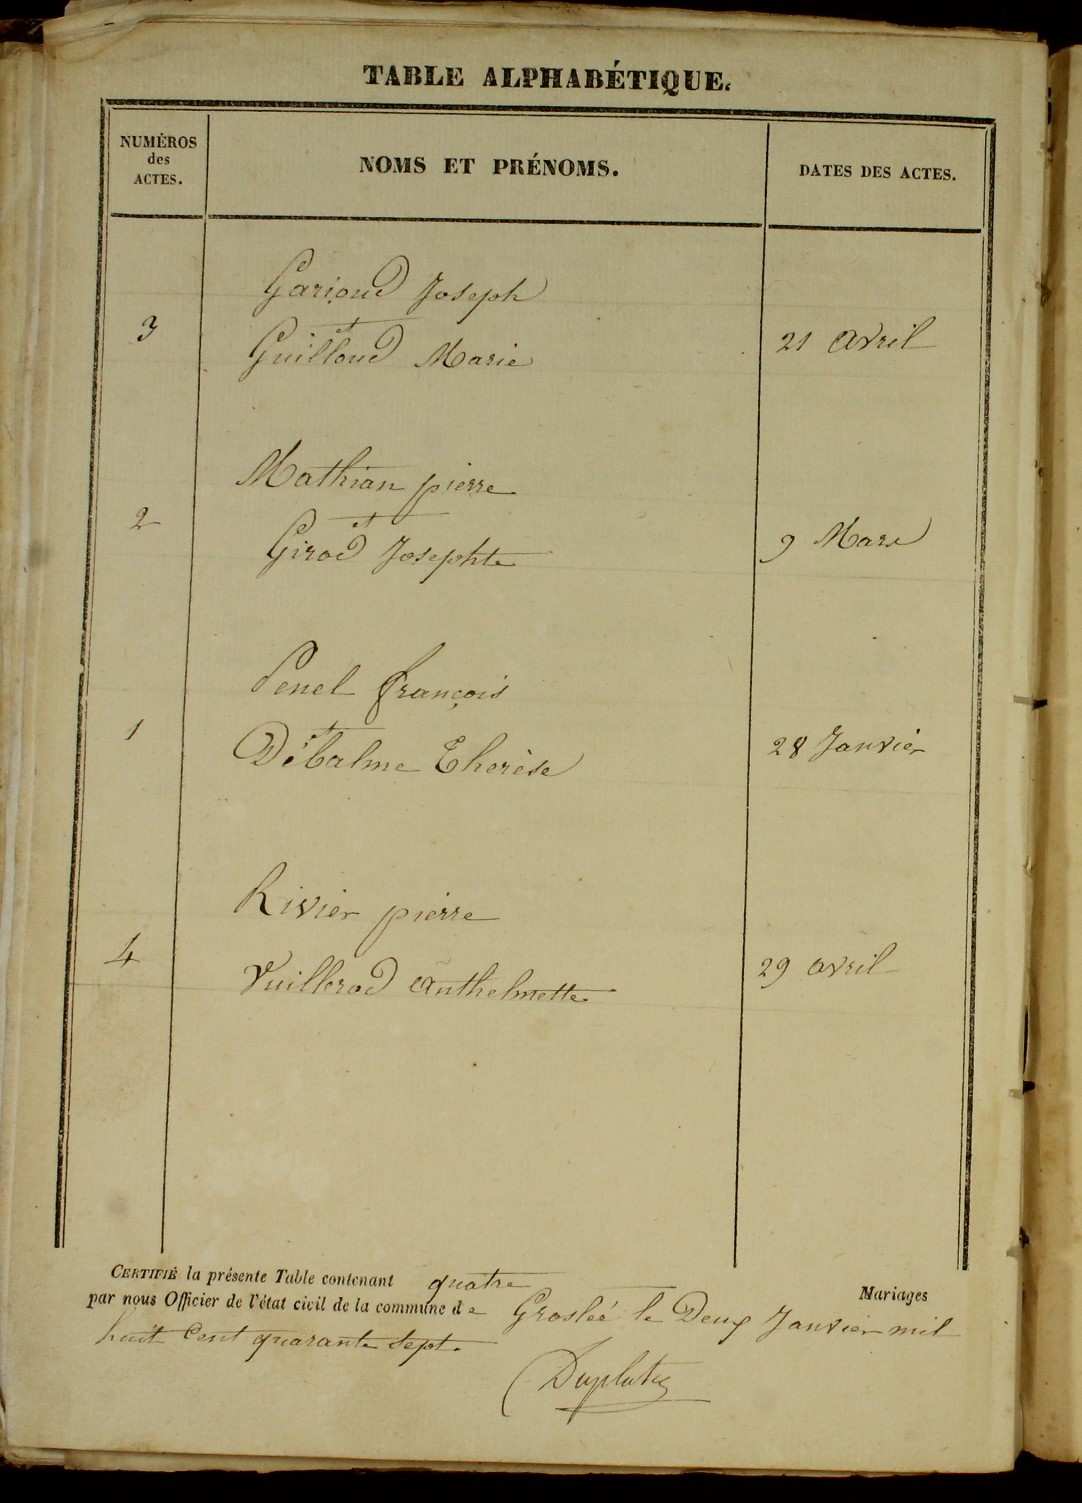 TABLE ALPHABÉTIQUE.
NUMÉROS
des
ACTES.
NOMS ET PRÉNOMS.
DATES DES ACTES.
Garioud Joseph
et
3 Guilloud Marie 21 avril
Mathian pierre
et
2 Girod Josephte 9 Mars
Penel françois
et
1 Débalme Therèse 28 Janvier
Rivier pierre
4 Vuillerod Anthelmette 29 avril
CERTIFIÉ la présente Table contenant quatre Mariages
par nous Officier de l'état civil de la commune de Groslée le Deux Janvier mil
huit Cent quarante sept.